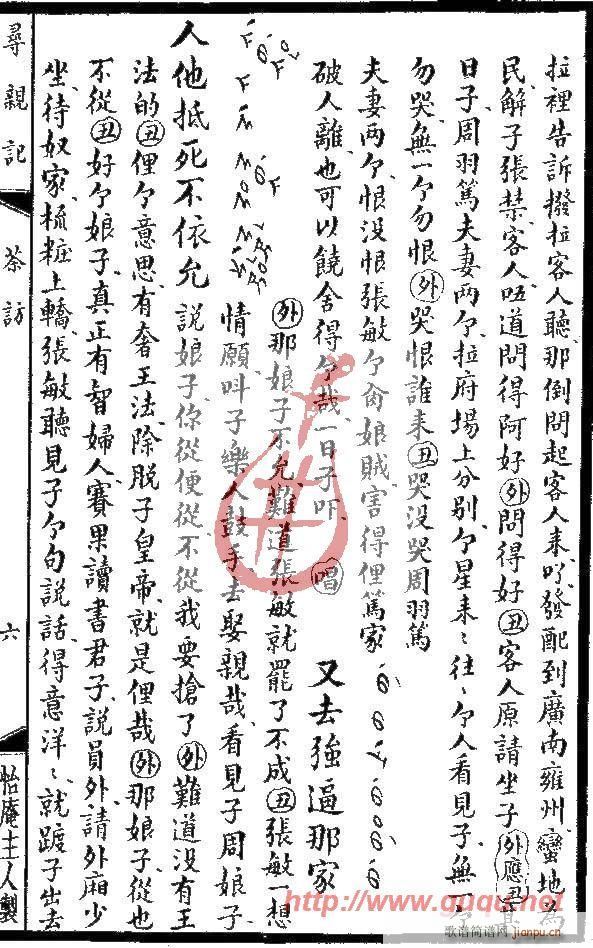 拉裡告訴撥拉客人聽那倒問起客人来吖發配到廣南雍州蠻地為
民解子張禁客人唔道問得阿好外問得好丑客人原請坐子外應丑
日子周羽篤夫妻兩个拉府場上分别个星来〻往〻个人看見子無一个
勿哭無一个勿恨外哭恨誰来丑哭没哭周羽篤
夫妻兩个恨没恨張敏个㑚娘賊害得俚篤家
破人離也可以饒舍得个哉一日子吓唱又去強逼那家
外那娘子不允難道張敏就罷了不成丑張敏一想
情願叫子樂人鼓手去娶親哉看見子周娘子
人他抵死不依允說娘子你從便從不從我要搶了外難道没有王
法的丑俚个意思有奢王法除脱子皇帝就是俚哉外那娘子從也
不從丑好个娘子真正有智婦人賽果讀書君子說員外請外廂少
坐待奴家梳粧上轎張敏聽見子个句說話得意洋〻就踱子出去
尋親記 茶訪 六 怡庵主人製
http://www.guqu.net
歌谱简谱网
jianpu.cn